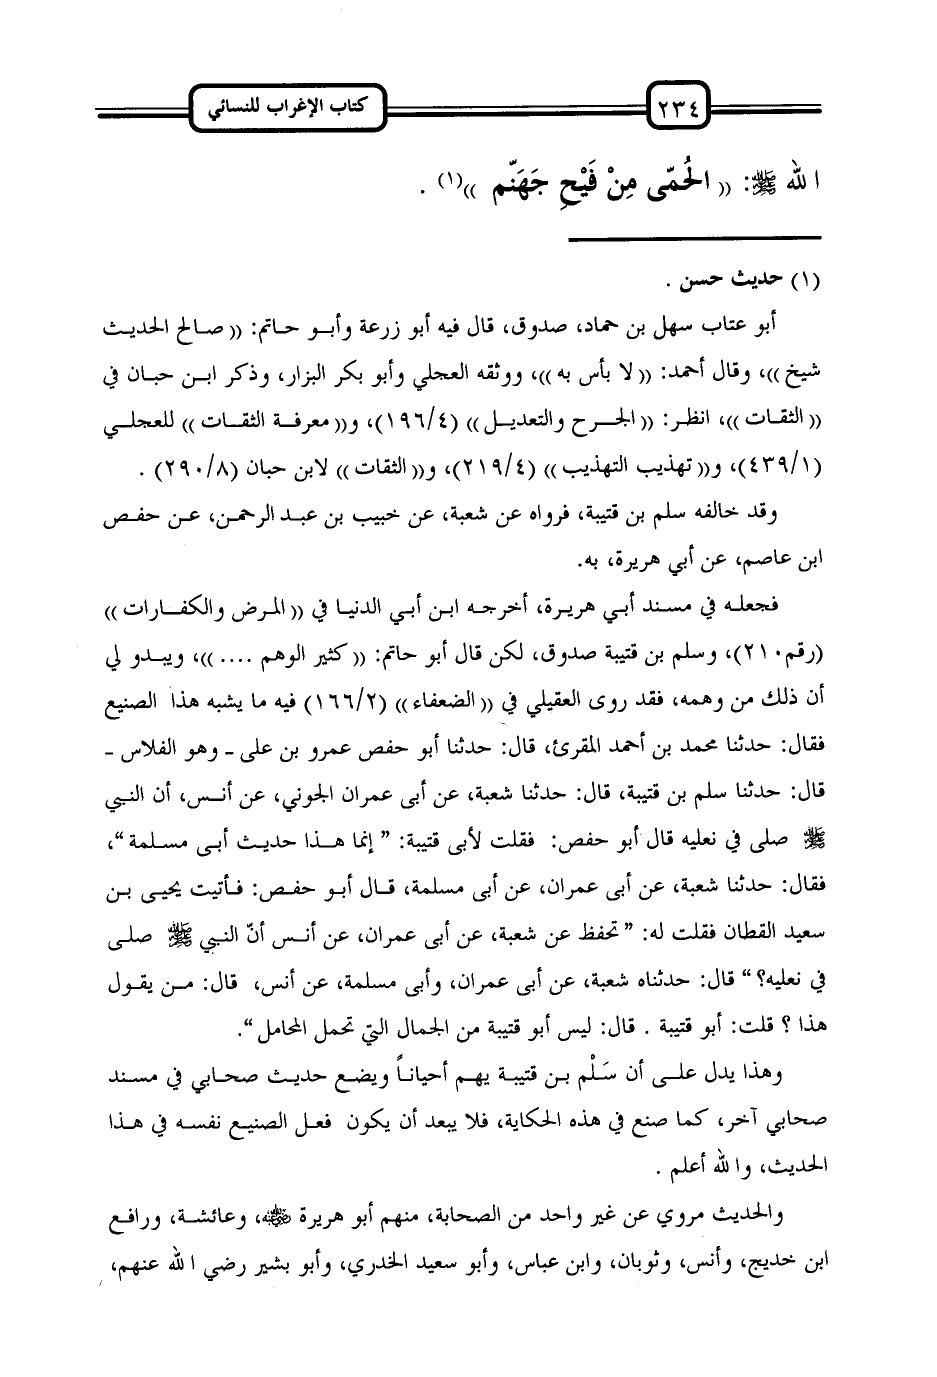 ٢٣٤
كتاب الإغراب للنسائي
الله ﷺ: (( الْحُمَّى مِنْ فَيْحِ جَهَنَّم ))(١) .
(١) حديث حسن .
أبو عتاب سهل بن حماد، صدوق، قال فيه أبو زرعة وأبو حاتم: (( صالح الحديث
شيخ ))، وقال أحمد: (( لا بأس به ))، ووثقه العجلي وأبو بكر البزار، وذكر ابن حبان في
(( الثقات ))، انظر: (( الجرح والتعديل )) (١٩٦/٤)، و(( معرفة الثقات )) للعجلي
(٤٣٩/١)، و(( تهذيب التهذيب )) (٢١٩/٤)، و(( الثقات )) لابن حبان (٢٩٠/٨) .
وقد خالفه سلم بن قتيبة، فرواه عن شعبة، عن خبيب بن عبد الرحمن، عن حفص
ابن عاصم، عن أبي هريرة، به.
فجعله في مسند أبي هريرة، أخرجه ابن أبي الدنيا في (( المرض والكفارات ))
(رقم٢١٠)، وسلم بن قتيبة صدوق، لكن قال أبو حاتم: (( كثير الوهم .... ))، ويبدو لي
أن ذلك من وهمه، فقد روى العقيلي في (( الضعفاء )) (١٦٦/٢) فيه ما يشبه هذا الصنيع
فقال: حدثنا محمد بن أحمد المقرئ، قال: حدثنا أبو حفص عمرو بن على ـ وهو الفلاس ـ
قال: حدثنا سلم بن قتيبة، قال: حدثنا شعبة، عن أبى عمران الجوني، عن أنس، أن النبي
ﷺ صلى في نعليه قال أبو حفص: فقلت لأبى قتيبة: ” إنما هذا حديث أبى مسلمة “،
فقال: حدثنا شعبة، عن أبى عمران، عن أبى مسلمة، قال أبو حفص: فأتيت يحيى بن
سعيد القطان فقلت له: ” تحفظ عن شعبة، عن أبى عمران، عن أنس أنّ النبي ﷺ صلى
في نعليه؟ “ قال: حدثناه شعبة، عن أبى عمران، وأبى مسلمة، عن أنس، قال: من يقول
هذا ؟ قلت: أبو قتيبة . قال: ليس أبو قتيبة من الجمال التي تحمل المحامل “.
وهذا يدل على أن سَلْم بن قتيبة يهم أحياناً ويضع حديث صحابي في مسند
صحابي آخر، كما صنع في هذه الحكاية، فلا يبعد أن يكون فعل الصنيع نفسه في هذا
الحديث، والله أعلم .
والحديث مروي عن غير واحد من الصحابة، منهم أبو هريرة ﷺ، وعائشة، ورافع
ابن خديج، وأنس، وثوبان، وابن عباس، وأبو سعيد الخدري، وأبو بشير رضي الله عنهم،